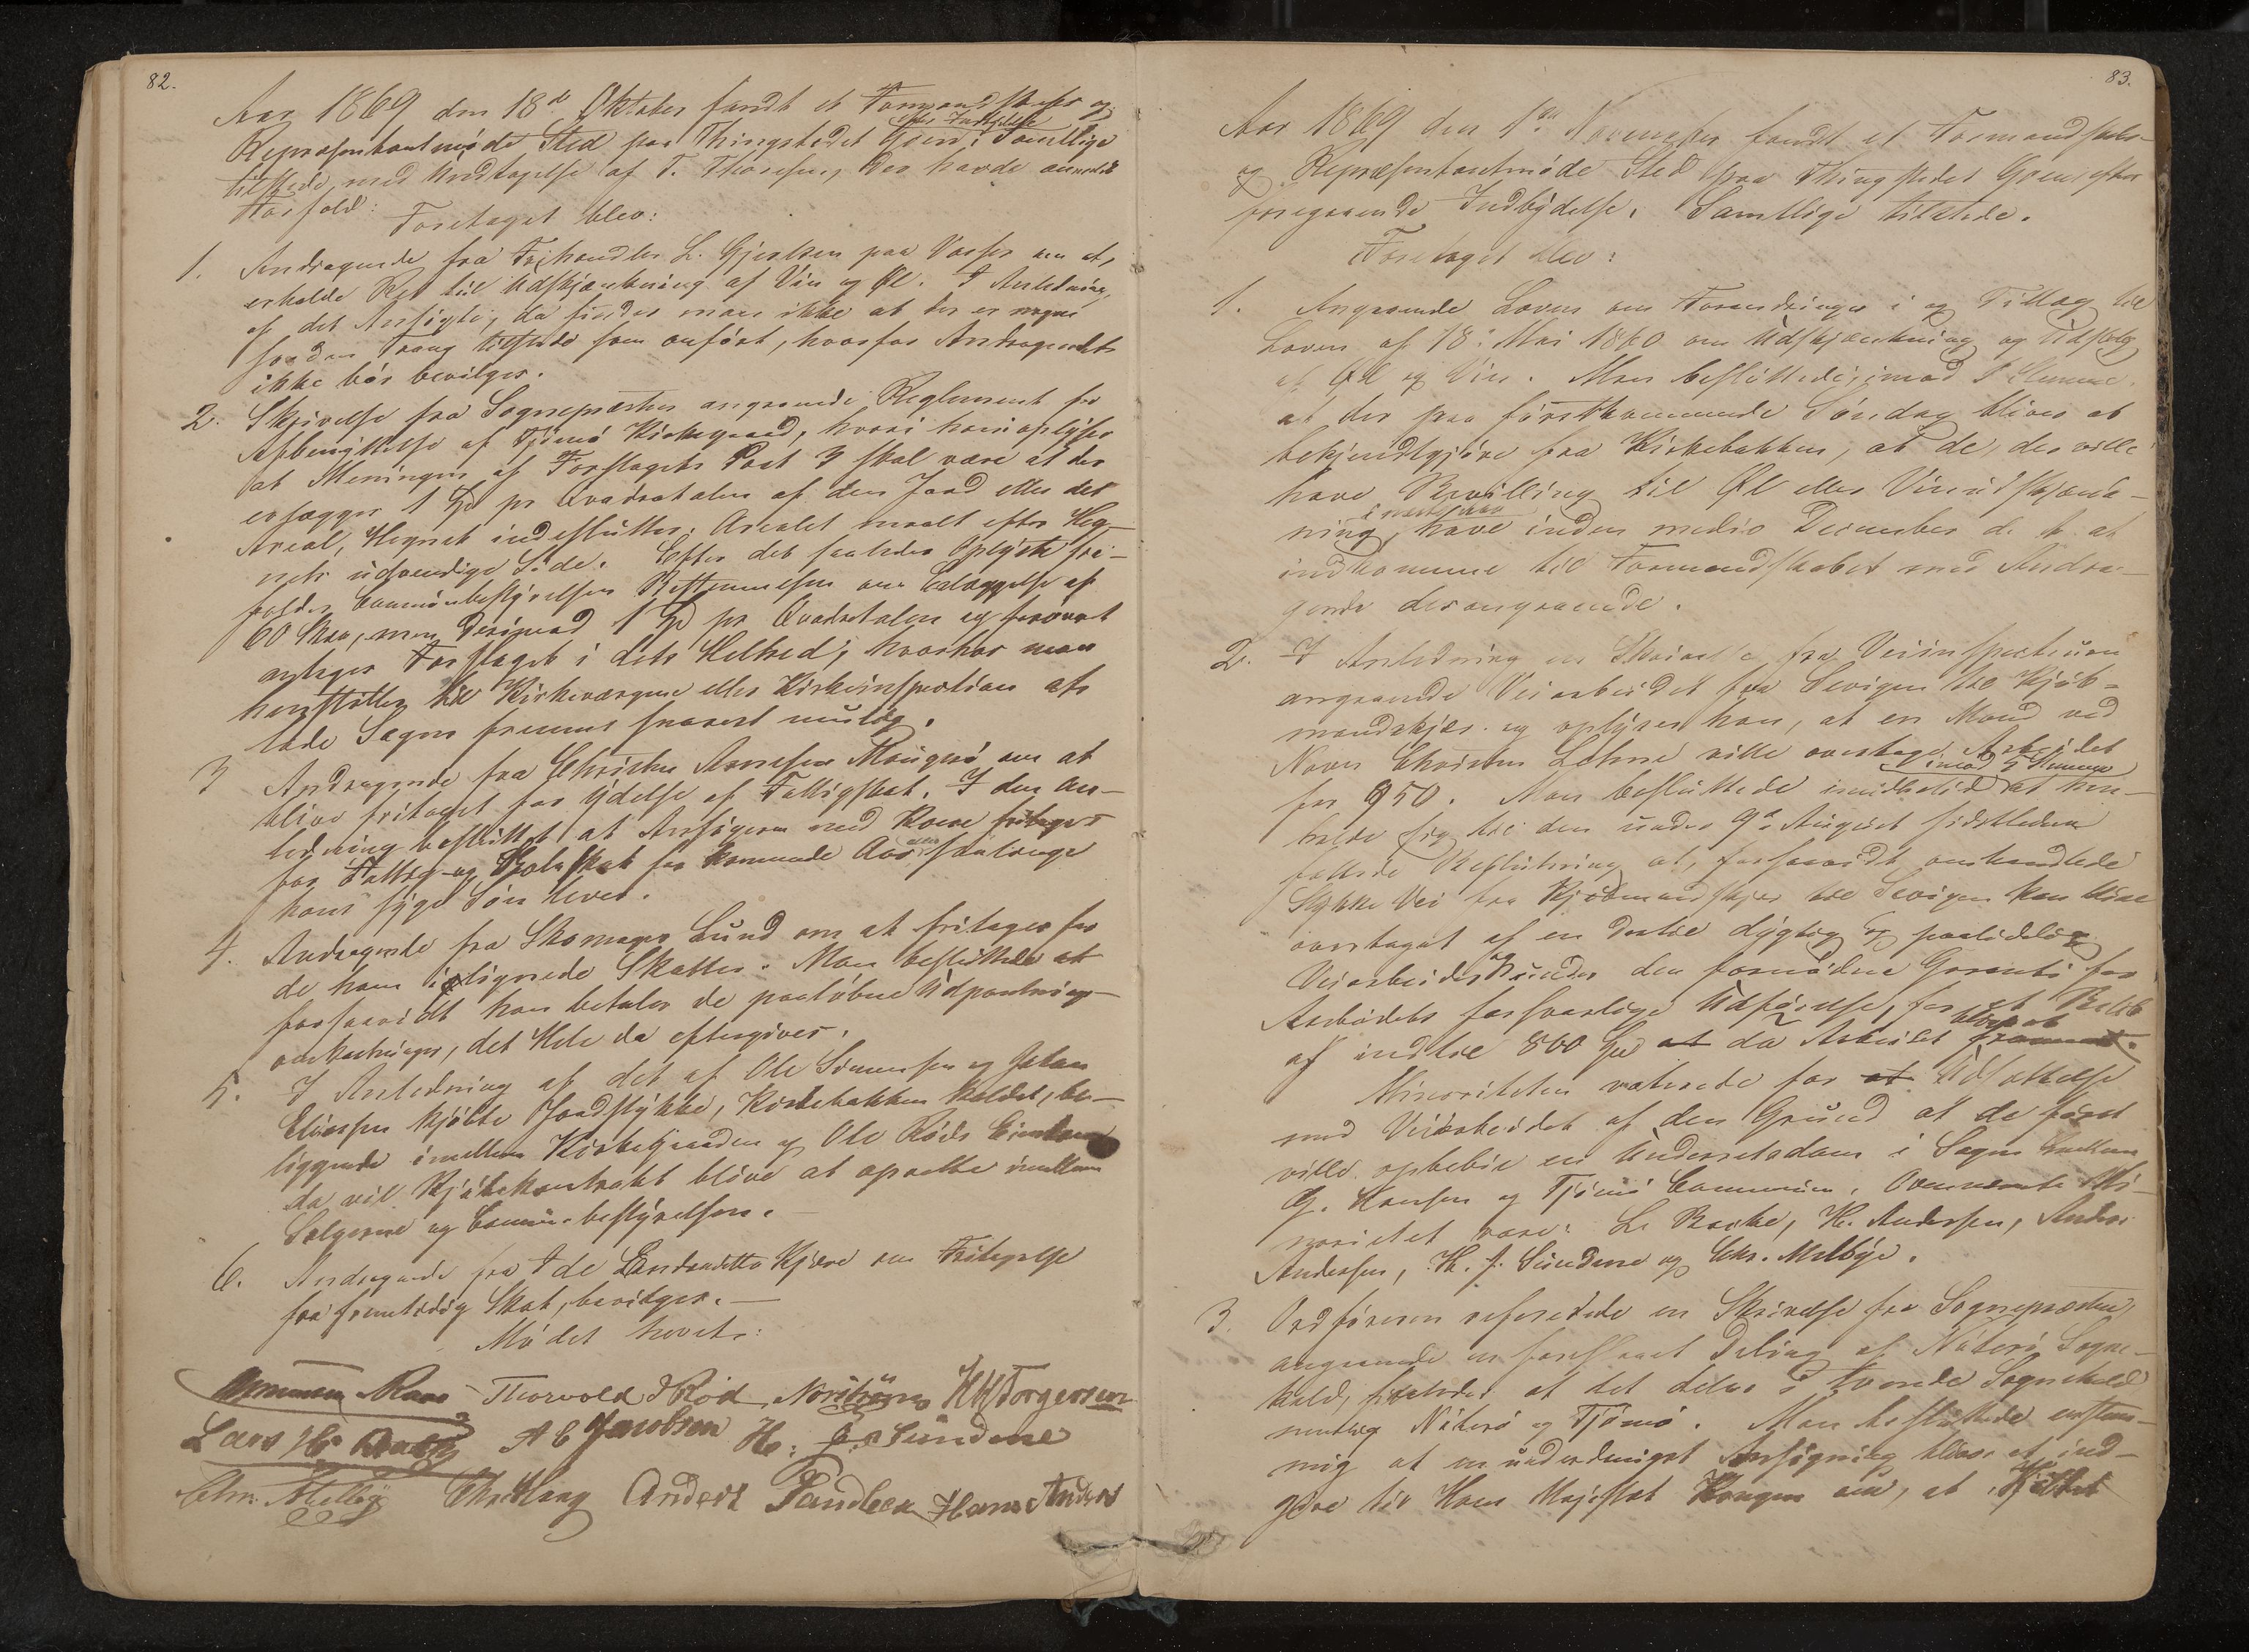 82.
Aar 1869 den 18de Oktober fandt et Formandskabs og
Repræsentantmøde Sted paa Thingstedet Grend; Samtlige
efter Indbydelse
tilstede, med Undtagelse af T. Thoresen, der havde anmeldt
Forfald:
Foretaget blev:
1. Andragende fra Frihandler L. Gjertsen paa Vasser om at
erholde Ret til Udskjænkning af Vin og Øl. I Anledning
af det Ansøgte, da findes man ikke at der er nogen
saadan Trang tilstede som anført, hvorfor Andragendet
ikke bør bevilges.
2. Skrivelse fra Sognepresten angaaende Reglement for
Afbenyttelse af Tjømø Kirkegaard, hvori han oplyser
at Meningen af Forslagets Post 3 skal være at der
erlægges 1 Spd pr Qvadratalen af den Jord eller det
Areal, Hegnet indeslutter, Arealet maalt efter Heg-
nets udvendige Side. Efter det saaledes Oplyste fra-
falder Communbestyrelsen Bestemmelsen om Erlæggelse af
60 Skill, men derimod 1 Spd pr Qvadratalen og forøvrigt
antager Forslaget i dets Helhed, hvorhos man
henstiller til Kirkeværgerne eller Kirkeinspection at
lade Sagen fremme snarest mulig.
3 Andragende fra Christen Arnesen Mougnø om at
blive fritaget for Ydelse af Fattigskat. I den An-
ledning besluttet at Ansøgeren med Kone fritages
for Fattig- og Skoleskat for kommende Aar, saalænge
hans syge Søn lever.
4. Andragende fra Skomager Lund om at fritages for
de ham ilignede Skatter. Man besluttede at
forsaavidt han betaler de paaløbne Udpantnings-
omkostninger, det Hele da eftergives.
5. I Anledning af det af Ole Simensen og Johan
Eliassen kjøbte Jordstykke, Kirkebakken kaldet, be-
liggende imellem Kirkegaarden og Ole Røds Eiendom
da vil Kjøbekontrakt blive at oprette imellem
Sælgerne og Commünebestyrelsen.
6. Andragende fra Ude Kjære om Fritagelse
fra fremtidig Skat, bevilges.—
Mødet hævet:
Thorvold Rød Norstrøm HHTorgersen
Lars Hs Bache A C Jacobsen H: J: Sündene
Chr. Melbÿe Chr Haug Anders Sandbeck Hans Anders
83.
Aar 1869 den 1ste November fandt et Formandskabs-
og Repræsentantmøde Sted paa Thingstedet Grend efter
foregaaende Indbydelse. Samtlige tilstede.
Foretaget blev:
1. Angaaende Loven om Forandringer i og Tillæg til
Loven af 18: Mai 1860 om Udskjænkning og Udsalg
af Øl og Vin. Man besluttede, imod 1 Stemme,
at der paa førstkommende Søndag bliver at
bekjendtgjøre fra Kirkebakken, at de, der ville
have Bevilling til Øl eller Vinudskjænk-
i næste Aar
ning, have inden medio December d. A. at
indkomme til Formandskabet med Andra-
gende derangaaende.
2. I Anledning en Skrivelse fra Veiinspecteuren
angaaende Veiarbeidet fra Sevigen til Kjøb-
mandskjær og oplyser han, at en Mand ved
Navn Christen Lohne ville overtage Arbeidet
imod 5 Stemmer
for 950. Man besluttede imidlertid at hen-
holde sig til den under 9de August sidstleden
fattede Beslutning at, forsaavidt omhandlede
Stykke Vei fra Kjøbmandskjær til Sevigen kan blive
overtaget af en dertil dygtig og paalidelig
Veiarbeider under den fornødne Garanti for
Arbeidets forsvarlige Udførelse, for et Beløb
af indtil 800 Spd at da Arbeidet fremmet.
bliver at
Minoriteten voterede for at Udsættelse
med Veiarbeidet af den Grund at de først
ville opbebie en Underretsdom i Sagen imellem
G. Hansen og Tjømø Commun. Ovennævnte Mi-
noritet vare: L. Backe, H. Andersen, Anders
Andersen, H. J. Sündene og Chr. Melbye.
3. Ordføreren refererede en Skrivelse fra Sognepresten,
angaaende en foreslaaet Deling af Nøterø Sogne-
kald, saaledes at det deles i tvende Sognekald
nemlig Nøterø og Tjømø. Man besluttede enstem-
mig at en underdanigst Ansøgning bliver at ind-
give til Hans Majestæt Kongen om, at